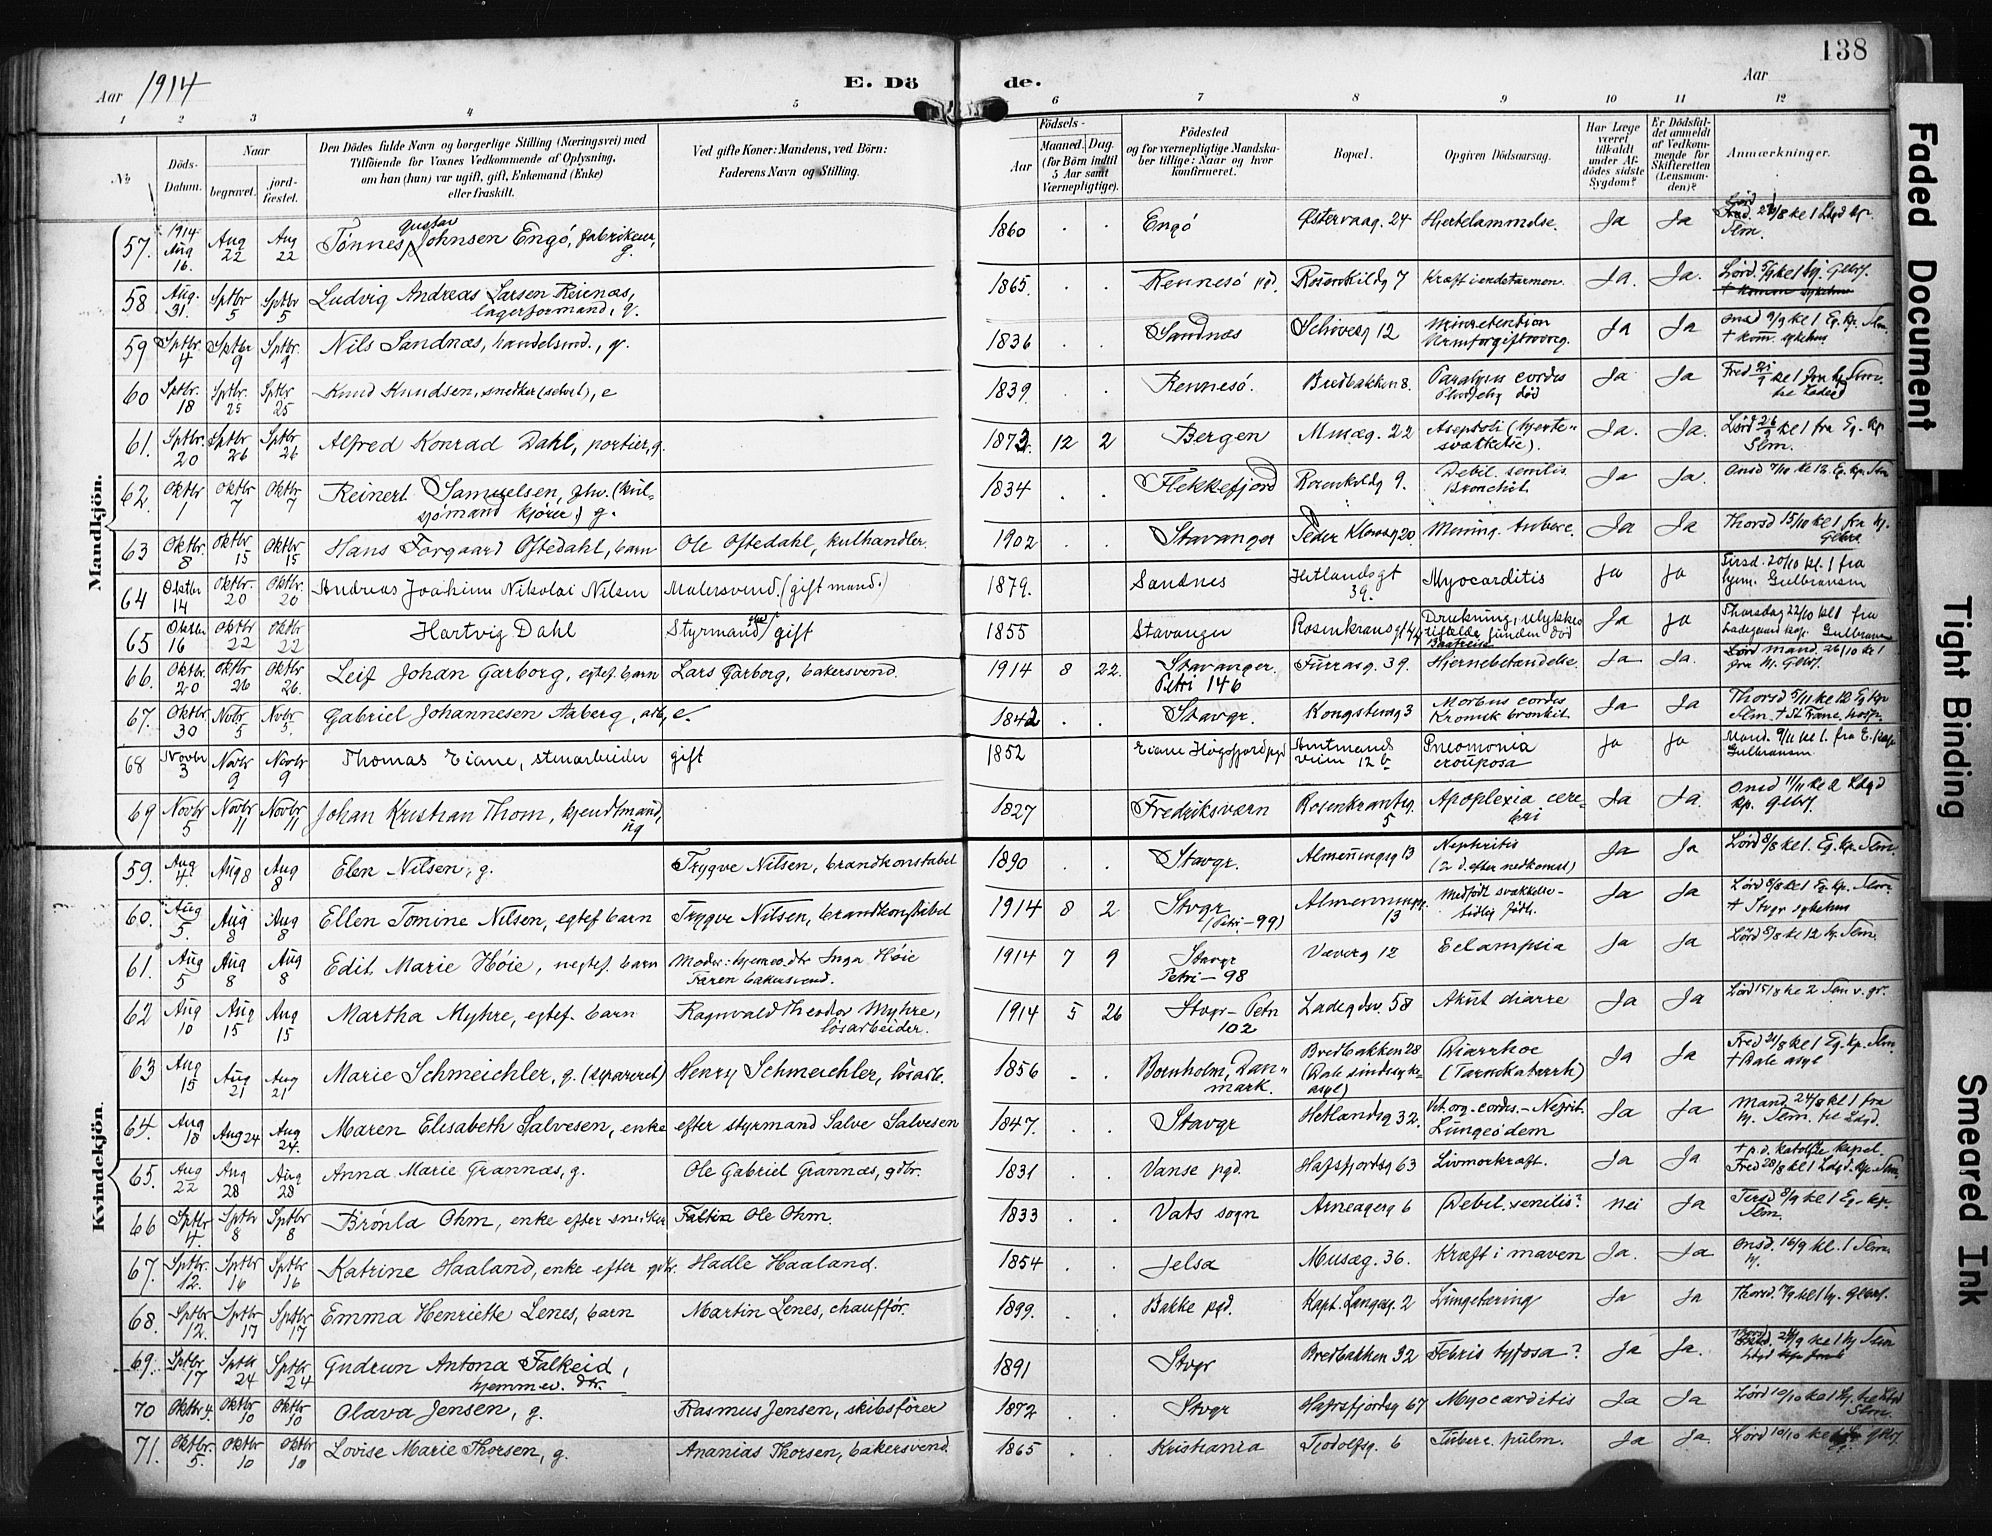 138
Aar 1914
E. Döde.
Aar
1 2 3 4 5 6 7 8 9 10 11 12
№
Döds-Datum.
Naar
begravet.
jord-fæstet.
Den Dödes fulde Navn og borgerlige Stilling (Næringsvei) med
Tilföiende for Voxnes Vedkommende af Oplysning,
om han (hun) var ugift, gift, Enkemand (Enke)
eller fraskilt.
Ved gifte Koner: Mandens, ved Börn:
Faderens Navn og Stilling.
Födsels-
Aar
Maaned. Dag.
(for Börn indtil
5 Aar samt
Værnepligtige).
Födested
og for værnepligtige Mandska-
ber tillige: Naar og hvor
konfirmeret.
Bopæl.
Opgiven Dödsaarsag.
Har Læge
været
tilkaldt
under Af-
dödes sidste
Sygdom?
Er Dödsfal-
det anmeldt
af Vedkom-
mende for
Skifteretten
(Lensman-
den)?
Anmærkninger.
Mandkjön.
57. 1914 Aug 16. Aug 22 Aug 22 Tönnes Gustav Johnsen Engö, fabrikeier, g. 1860 . . Engö Østervaag. 24 Hjertelammelse. Ja Ja 22/8 kl 1 Ldgd kp. Slm.
58 Aug. 31. Sptbr 5 Sptbr 5 Ludvig Andreas Larsen Reienæs, lagerformand, g. 1865. . . Rennesö pgd. Rosenkildg 7 Kræft i endetarmen. Ja. Ja. Lörd. 5/9 kl 1 hj. Glbr.
59 Sptbr. 4 Sptbr 9 Sptbr. 9 Nils Sandnæs, handelsmd., g. 1836 . . Sandnæs 12 Urinretention Urinforgiftning. Ja Ja Onsd 9/9 kl 1 Eg. kp. Slm † Kom. sykehus
60 Sptbr. 18 Sptbr. 25 Sptbr 25 Knud Knudsen, snedker (selvst), e 1839. . . Rennesö. Bredbakken 8. Paralysis cordis Pludselig död Ja Ja Fred 25/9 kl 1 fra hj Slm.
61. Sptbr. 20 Sptbr 26 Sptbr. 26 Alfred Konrad Dahl, portier, g. 1873. 12 2 Bergen Musæg. 22 (hjerte-svækkelse). Ja. Ja. Lörd 26/9 kl 1 fra Eg. kp Slm.
62. Oktbr 1 Oktbr 7 Oktbr. 7 Reinert Samuelsen, ghv. (kul- kjörer) sjömand g. 1834 . . Flekkefjord Rosenkildg 9. Debil. senilis. Bronchit. Ja Ja. Onsd 7/10 kl 12. Eg. kp. Slm
63 Oktbr. 8 Oktbr 15 Oktbr. 15 Hans Torgaard Oftedahl, barn Ole Oftedahl, kulhandler. 1902 . . Stavanger Peder Klowsg 20. Mening. tuberc. Ja Ja Thorsd 15/10 kl 1 fra hj. Glbrs.
64 Oktbr 14 Oktbr. 20 Oktbr. 20 Andreas Joakim Nikolai Nilsen Malersvend. (gift mand.) 1879. Sandnes Hetlandsgt 39. Myocarditis ja ja Tirsd. 20/10 kl. 1 fra hjem. Gulbransen
65 Oktbr 16 Oktbr 22 Oktbr 22 Hartvig Dahl Styrmand gift 1855 Stavanger Rosenkransg Drukning, ulykkes tilfælde funden död Ja ja Thorsdag 22/10 kl 1 fra Ladegaard kap. Gulbransen
66. Oktbr. 20 Oktbr 26 Oktbr 26. Leif Johan Garborg, egtef. barn Lars Garborg, bakersvend. 1914 8 22. Stavanger. Petri 146 Furrasg. 39. Hjernebetændelse. Ja Ja. Mand. 26/10 kl 1 fra hj. Glbrs.
67. Oktbr. 30 Novbr 5 Novbr. 5. Gabriel Johannesen Aaberg, arb, e. 1842 . . Stavgr. Kongsteing 3 Morbus cordis Kronisk bronkit. Ja Ja Thorsd 5/11 kl 12 Eg kp Slm. † St Franc. hosp.
68 Novbr 3 Novbr 9 Novbr 9 Thomas Eiane, stenarbeider gift 1852 Eiane Högsfjord pgd Amtmands veien 12 b Pneomonia crouposa ja ja Mand. 9/11 kl 1. fra E. kap. Gulbransen
69 Novbr 5 Novbr 11 Novbr 11 Johan Kristian Thom, ug 1827 . . Fredriksværn Rosenkrantsg. 5 Apoplexia cere-bri Ja Ja. Onsd 11/11 kl 2 Ldgd kp. Glbrs.
Kvindekjön.
59. Aug 4. Aug 8 Aug 8 Elen Nilsen, g. Trygve Nilsen, brandkonstabel 1890 . . Stavgr. Almenningsg 13 Nephritis (2 d. efter nedkomst) Ja Ja Lörd 8/8 kl 1. Eg. kp. Slm.
60. Aug 5. Aug 8 Aug 8 Ellen Tomine Nilsen, egtef barn Trygve Nilsen, brandkonstabel 1914 8 2 Stvgr (Petri - 99) Almenningsg. 13 Medfödt svækkelse - tidlig födt. Ja Ja Lörd 8/8 kl 1 Eg. kp. Slm † Stvgr sykehus
61. Aug 5 Aug 8 Aug 8 Edit Marie Höie, uegtef. barn Moder: hjemmev. dtr Inga Höie Faren bakersvend. 1914 7 9 Stavgr Petri - 98 Væverg 12 Eclampsia Ja Ja Lörd 8/8 kl 12 hj. Slm.
62 Aug 10 Aug 15 Aug 15 Martha Myhre, egtef. barn Ragnvald Theodor Myhre, lösarbeider. 1914 5 26 Stvgr - Petri 102 Ladegdsv. 58 Akut diarre Ja Ja Lörd 15/8 kl 2 Slm v. gr.
63 Aug 15 Aug 21 Aug 21 Marie Schmeichler, g. (separeret) Henry Schmeichler, lösarb. 1856 . . Bornholm, Dan-mark. Bredbakken 28 (Dale sindssyke asyl) Diarrhoe (Tarmkatarrh) Ja Ja Fred 21/8 kl 1 Eg. kp. Slm. † Dale asyl
64. Aug 18 Aug 24 Aug 24. Maren Elisabeth Salvesen, enke efter styrmand Salve Salvesen 1847. . . Stavgr Hetlandsg 32. Vit. org. cordis. - Nefrit. Lungeödem Ja Ja Mand. 24/8 kl 1 fra hj. Slm. til Ldgd.
65. Aug 22 Aug 28 Aug 28 Anna Marie Grannæs, g. Ole Gabriel Grannæs, gdbr. 1831 . . Vanse pgd. Hafsfjordsg 63 Livmorkræft. Ja Ja † p.d. katolske kapel. Fred 28/8 kl 1 Ldgd. kp. Slm.
66 Sptbr 4. Sptbr 8 Sptbr 8 Brönla Ohm, enke efter snekker Ole Ohm. 1833 . . Vats sogn Arneagerg 6 Debil. senilis? Nei Ja Tirsd 8/9 kl 1 Eg. kp. Slm.
67. Sptbr. 12. Sptbr 16 Sptbr 16 Katrine Haaland, enke efter gdbr. Hadle Haaland. 1854 . . Jelsa Musæg. 36. Kræft i maven Ja. Ja Onsd. 16/9 kl. 1 Slm. hj.
68. Sptbr 12. Sptbr 17 Sptbr 17 Emma Henriette Lenes, barn Martin Lenes, chauffför. 1899. . . Bakke pgd. Kapt. Langesg. 2 Lungetæring Ja Ja Thorsd. 17/9 kl 1 hj. Glbrs.
69. Sptbr. 17 Sptbr 24 Sptbr. 24 Gudrun Antona Falkeid, hjemmev. dtr. 1891 Stvgr Bredbakken 32 Febris tyfosa? Ja Ja. 24/9 kl 1 hj Slm Ldgd
70 Oktbr 4. Oktbr 10 Oktbr. 10 Olava Jensen, g. Rasmus Jensen, skibsförer 1872 . . Stvgr Hafrsfjordsg 67 Myocarditis Ja Ja Lörd 10/10 kl 1 hj. Slm.
71. Oktbr. 5. Oktbr 10 Oktbr 10 Lovise Marie Thorsen, g. Ananias Thorsen, bakersvend. 1865 . . Kristiania Tjodolfsg. 6 Tuberc. pulm. Ja Ja Lörd 10/10 kl Glbrs.
Faded Document
Tight Binding
Smeared Ink